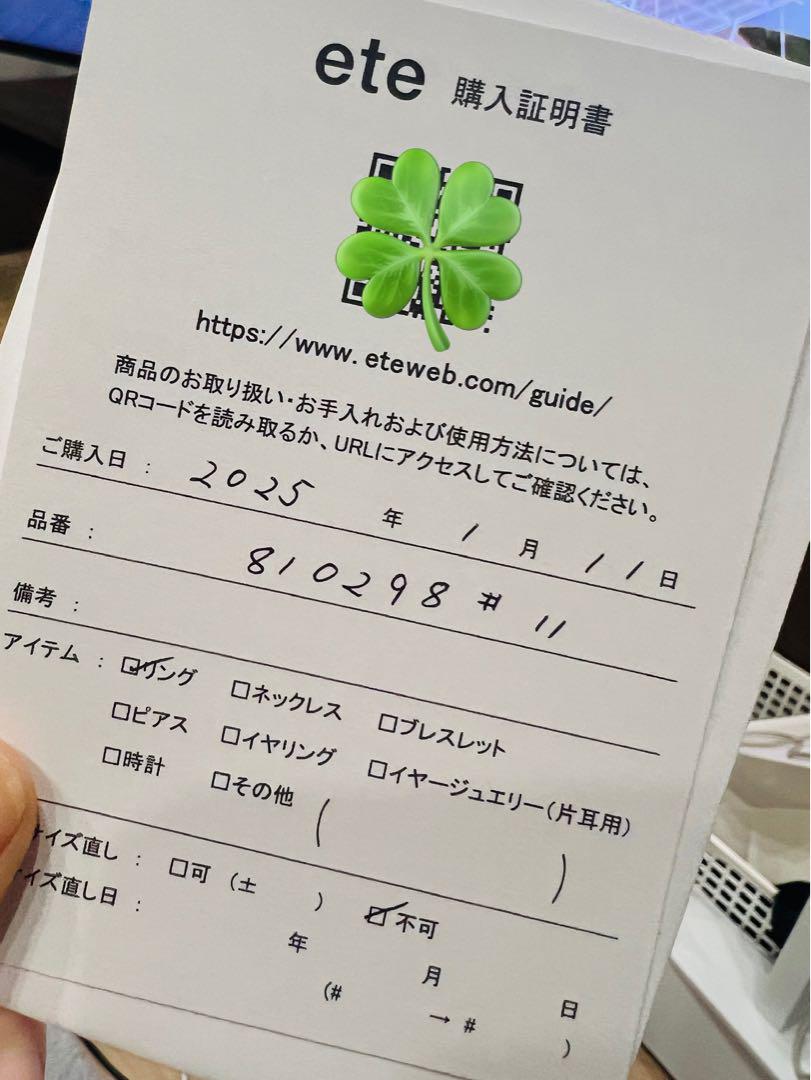 ete 購入証明書
https://www.eteweb.com/guide/
商品のお取り扱い・お手入れおよび使用方法については、
QRコードを読み取るか、URLにアクセスしてご確認ください。
ご購入日 : 2025 年 1 月 11 日
品番 : 810298 # 11
備考 :
アイテム : ☑リング □ネックレス □ブレスレット
□ピアス □イヤリング □イヤージュエリー(片耳用)
□時計 □その他 ( )
イズ直し : □可 (± ) ☑不可
イズ直し日 : 年 月 日
(# → # )